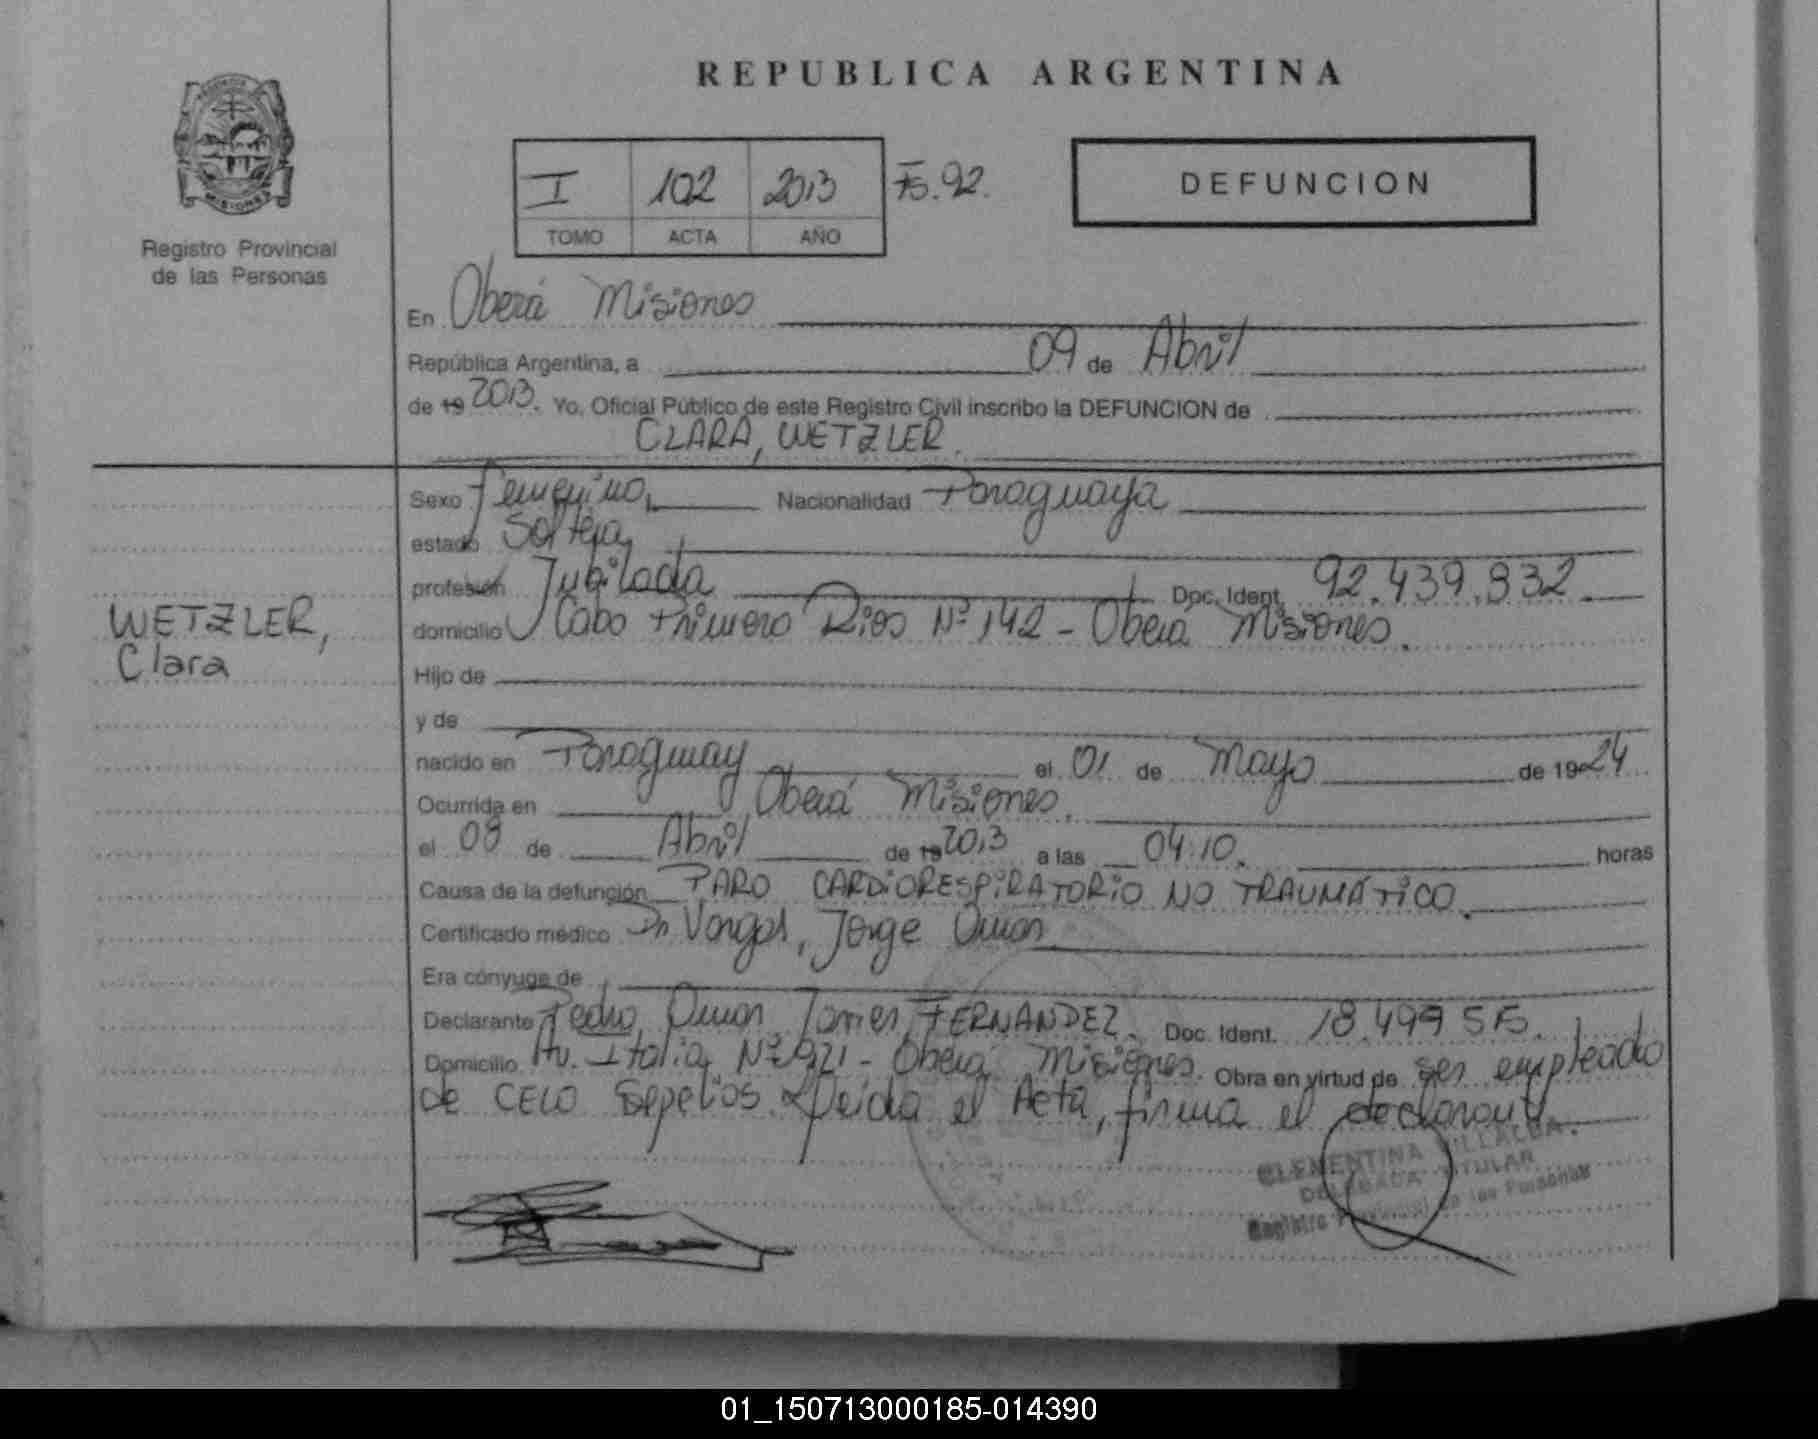 REPUBLICA ARGENTINA
MISIONES
Registro Provincial
de las Personas
I 102 2013 Fs. 92.
TOMO ACTA AÑO
DEFUNCION
En Oberá Misiones
República Argentina, a 09 de Abril
de 19 2013. Yo, Oficial Público de este Registro Civil inscribo la DEFUNCION de
CLARA, WETZLER.
Sexo femenino, Nacionalidad Paraguaya
estado Soltera,
profesión Jubilada Doc. Ident. 92.439.932
domicilio Cabo Primero Rios Nº 142 - Oberá Misiones.
WETZLER,
Clara
Hijo de
y de
nacido en Paraguay el 01 de Mayo de 19 24
Ocurrida en Oberá Misiones.
el 08 de Abril de 19 2013 a las 04:10. horas
Causa de la defunción PARO CARDIORESPIRATORIO NO TRAUMÁTICO.
Certificado médico Dr. Vargas, Jorge Omar
Era cónyuge de
Declarante Pedro, Omar, Javier, FERNANDEZ. Doc. Ident. 18.499.515.
Domicilio Av. Italia Nº 921 - Oberá Misiones. Obra en virtud de ser empleado
de CELO Sepelios. Leida el Acta, firma el declarante
CLEMENTINA VILLALBA
DELEGADA TITULAR
Registro Provincial de las Personas
01_150713000185-014390